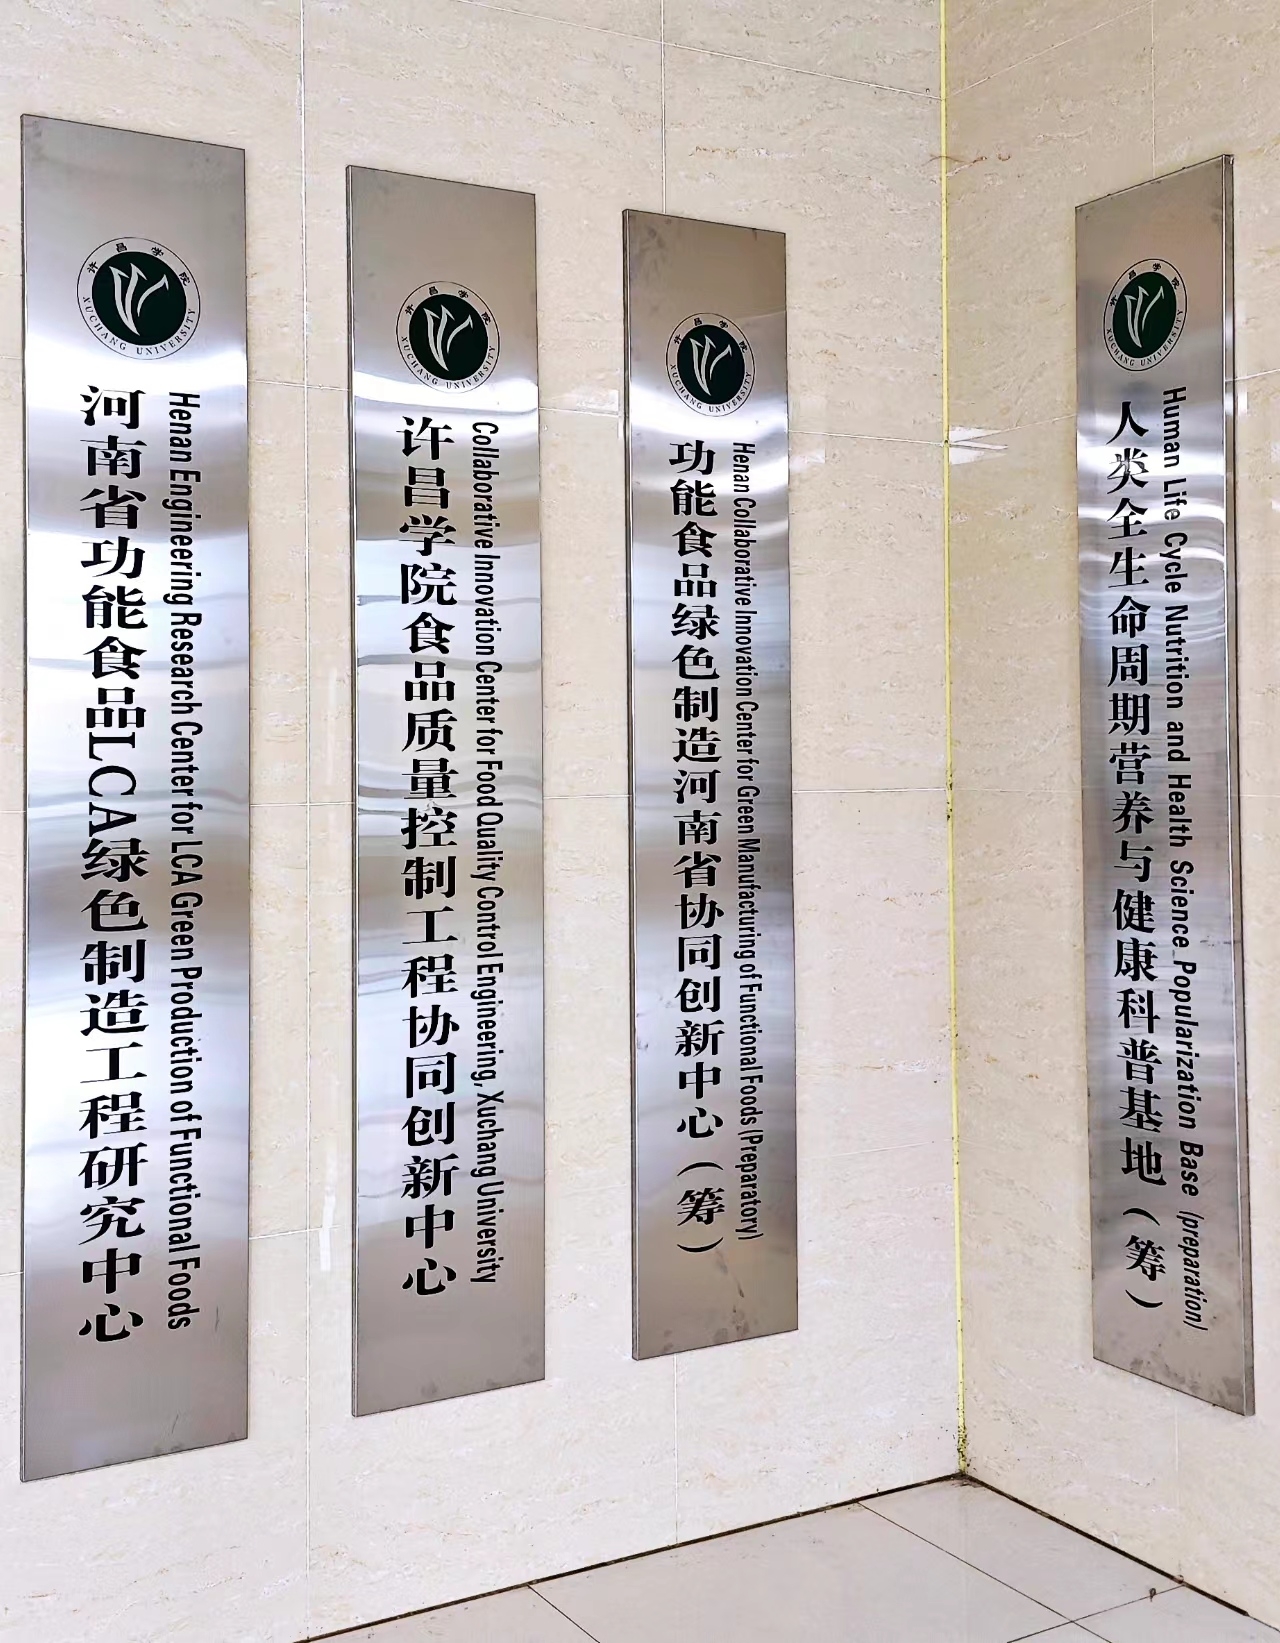 许昌学院
XUCHANG UNIVERSITY
河南省功能食品LCA绿色制造工程研究中心
Henan Engineering Research Center for LCA Green Production of Functional Foods
许昌学院
XUCHANG UNIVERSITY
许昌学院食品质量控制工程协同创新中心
Collaborative Innovation Center for Food Quality Control Engineering, Xuchang University
许昌学院
XUCHANG UNIVERSITY
功能食品绿色制造河南省协同创新中心（筹）
Henan Collaborative Innovation Center for Green Manufacturing of Functional Foods (Preparatory)
许昌学院
XUCHANG UNIVERSITY
人类全生命周期营养与健康科普基地（筹）
Human Life Cycle Nutrition and Health Science Popularization Base (preparation)